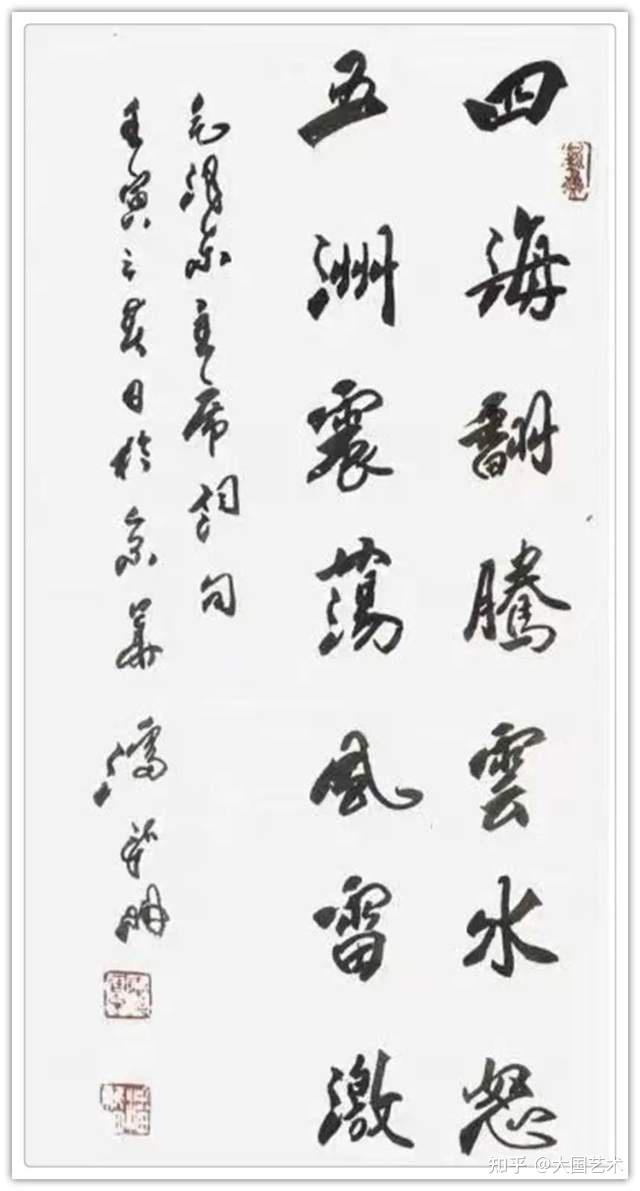 四海翻騰雲水怒
五洲震荡風雷激
毛澤东主席詞句
壬寅之春日於京華
知乎 @大国艺术